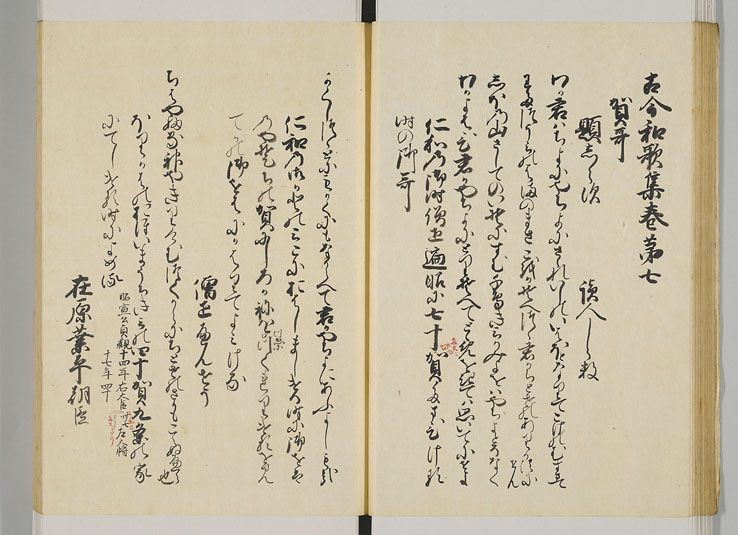 古今和歌集巻第七
賀哥
題しらす 読人しらす
わか君はちよにやちよにされいしのいはほとなりてこけのむすまて
わたつうみのはまのまさこをかそへつゝ君かちとせのありかすにせん
しほの山さしてのいそにすむ千鳥きみかみよをはやちよとそなく
わかよはひ君かやちよにとりそへてとゝめをきてはおもひいてにせよ
仁和の御時僧正遍昭に七十賀たまひける
時の御哥
かくしつゝとにもかくにもなからへて君かやちよにあふよしもかな
仁和の御かとのみこにおはしましける時に御をは
のやそちの賀にしろかねをつゑにつくれりけるをみ
てかの御をはにかはりてよみける
僧正へんせう
ちはやふる神やきりけむつくからにちとせのさかもこえぬへら也
ほりかはのおほいまうちきみの四十賀九条の家
にてしける時によめる
在原業平朝臣
昭宣公貞観十四年右大臣
十七年四十